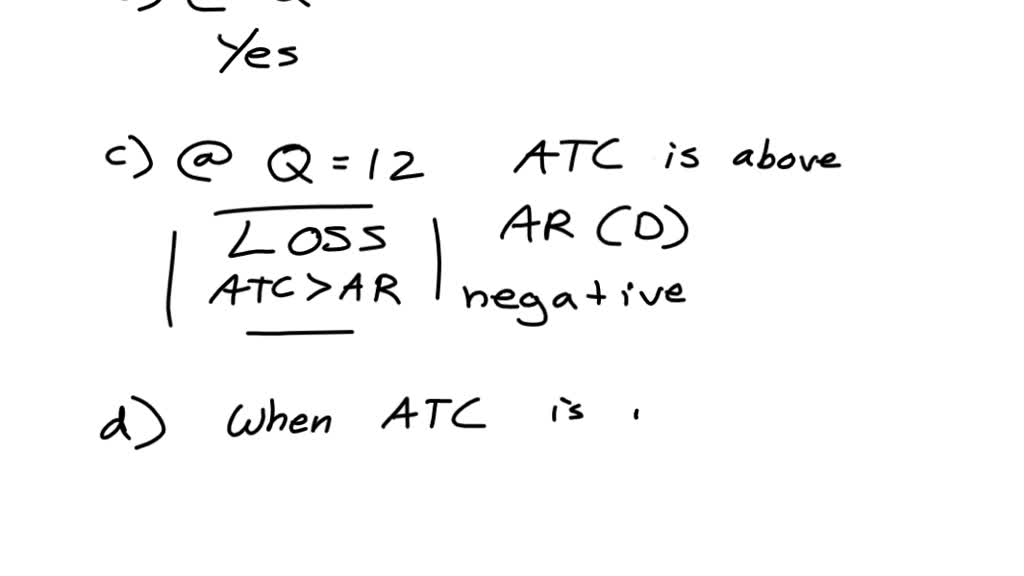 Yes
c) @ Q = 12 ATC is above
Loss AR (D)
ATC > AR negative
d) When ATC is